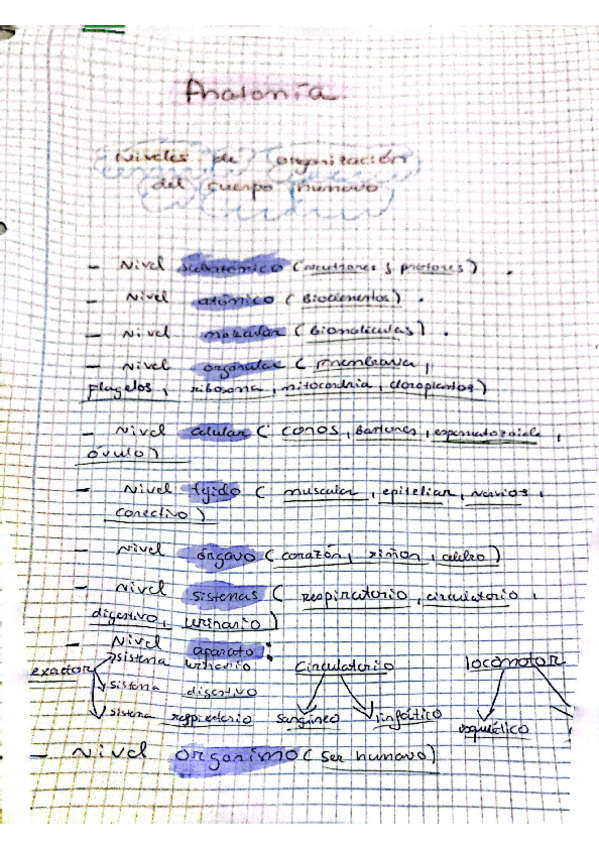 Anatomía
Niveles de organización
del cuerpo humano
- Nivel subatómico (neutrones y protones).
- Nivel atómico (Bioelementos).
- Nivel molecular (Biomoléculas).
- Nivel orgánular (membrana,
flagelos, ribosoma, mitocondria, cloroplastos)
- Nivel celular (conos, bastones, espermatozoide,
óvulo)
- Nivel tejido (muscular, epitelian, nervios,
conectivo)
- Nivel órgano (corazón, riñon,
- Nivel sistemas (respiratorio, circulatorio,
digestivo, urinario)
- Nivel aparato:
exactor sistema urinario Circulatorio locomotor
sistema digestivo
sistema respiratorio sangíneo linfático esquélico
- Nivel organimo (ser humano)